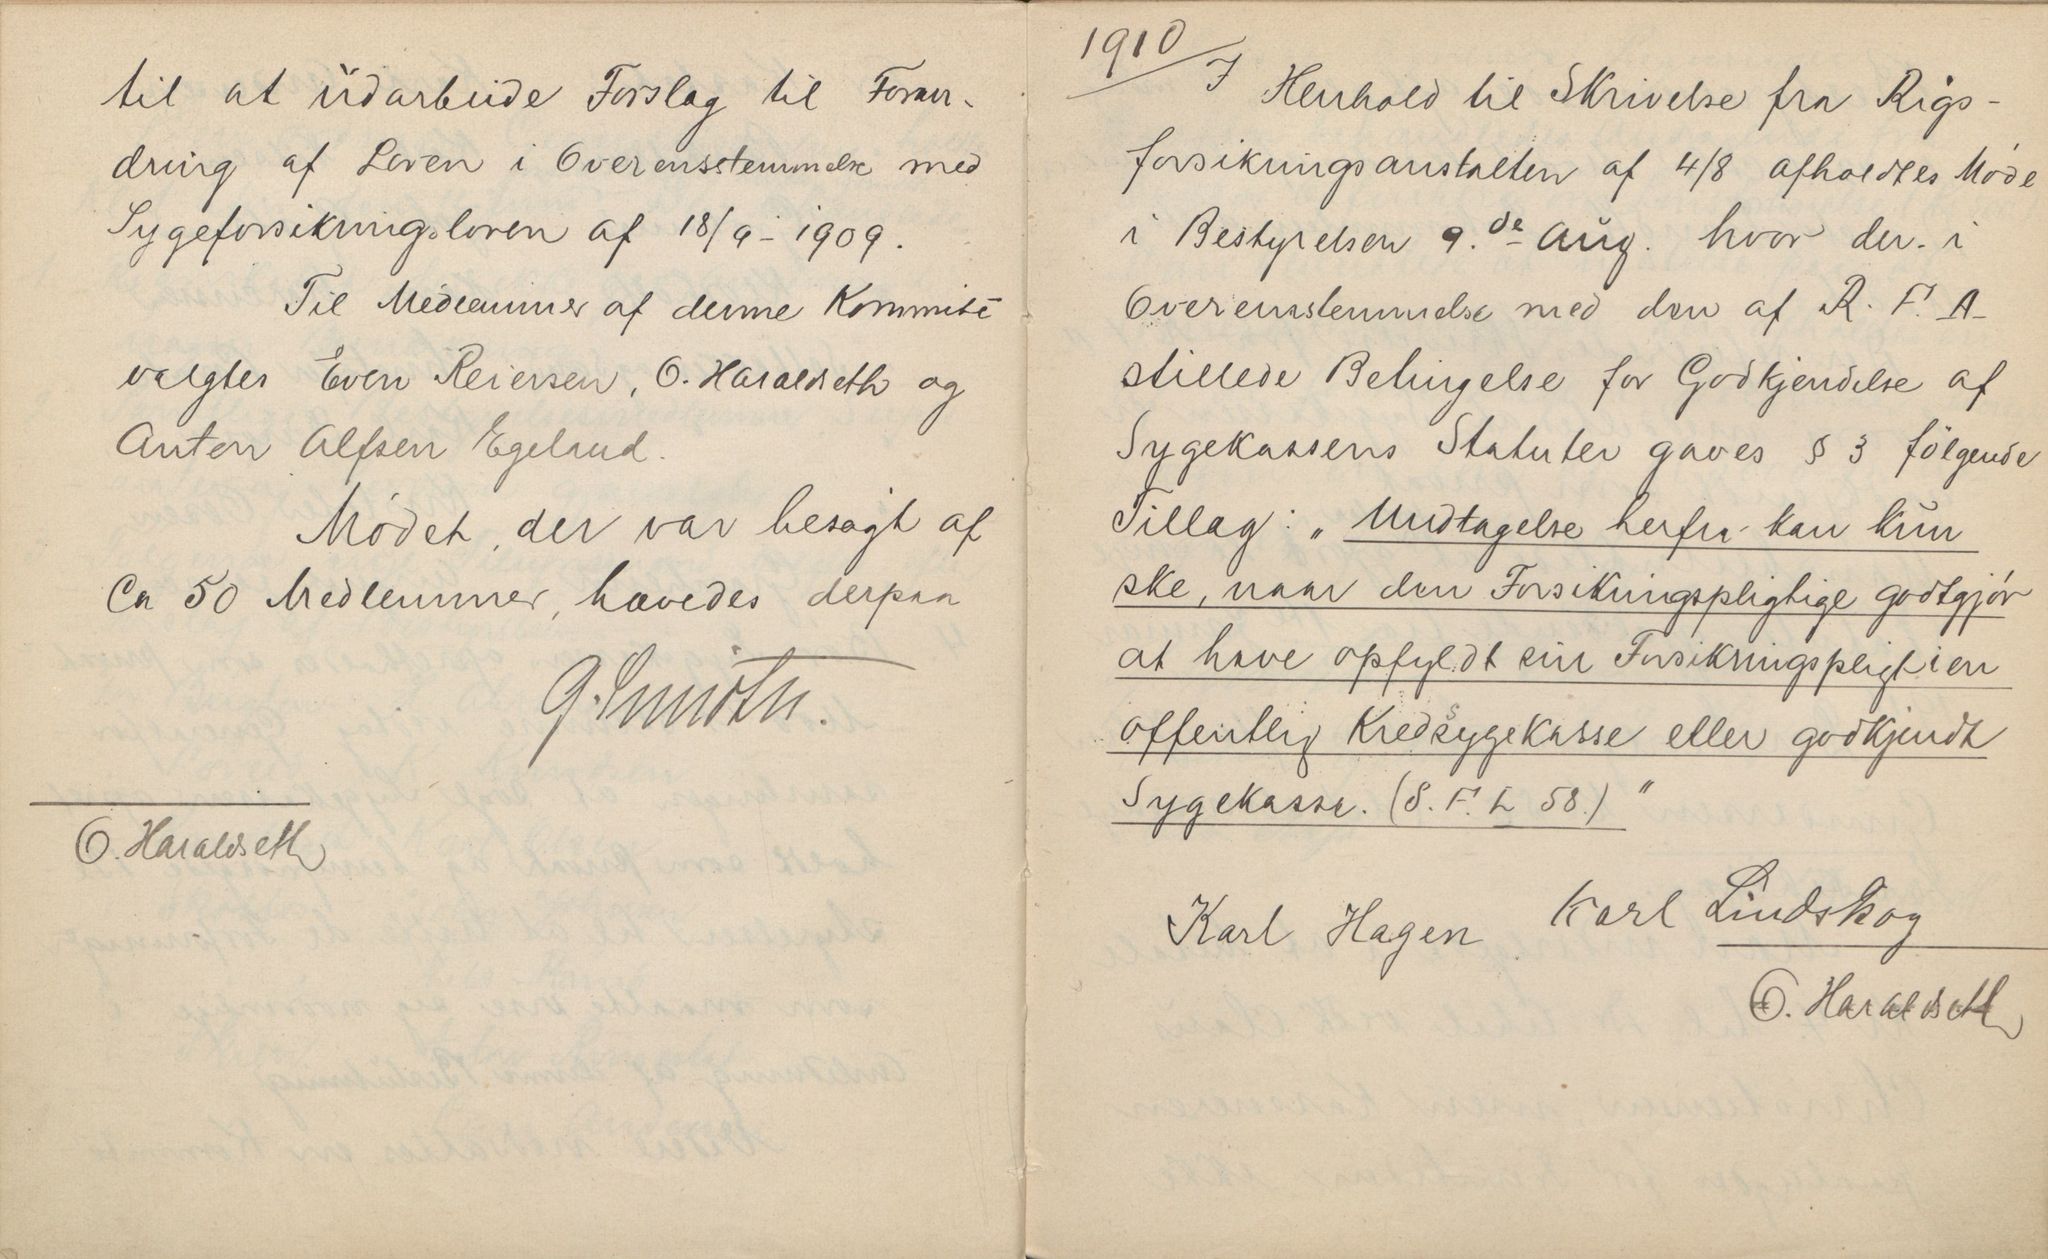 til at üdarbeide Forslag til Foran-
dring af Loven i Overensstemmelse med
Sygeforsikringsloven af 18/9 - 1909.
Til Medlemmer af denne Kommité
valgtes Even Reiersen, O. Haraldseth og
Anton Alfsen Egeland.
Mødet, der var besøgt af
Ca 50 Medlemmer, hævedes derpaa
G. Smidth.
O. Haraldseth
1910
I Henhold til Skrivelse fra Rigs-
forsikringsanstalten af 4/8 afholdtes Møde
i Bestyrelsen 9.de Aug. hvor der i
Overenstemmelse med den af R. F. A
stillede Betingelse for Godkjendelse af
Sygekassens Statuter gaves § 3 følgende
Tillæg: „Undtagelse herfra kan kŭn
ske, naar den Forsikringspligtige godtgjør
at have opfyldt sin Forsikringspligt i en
offentlig Kredssygekasse eller godkjendt
Sygekasse. (S. F. L 58.)"
Karl Hagen Karl Lindskog
O. Haraldseth